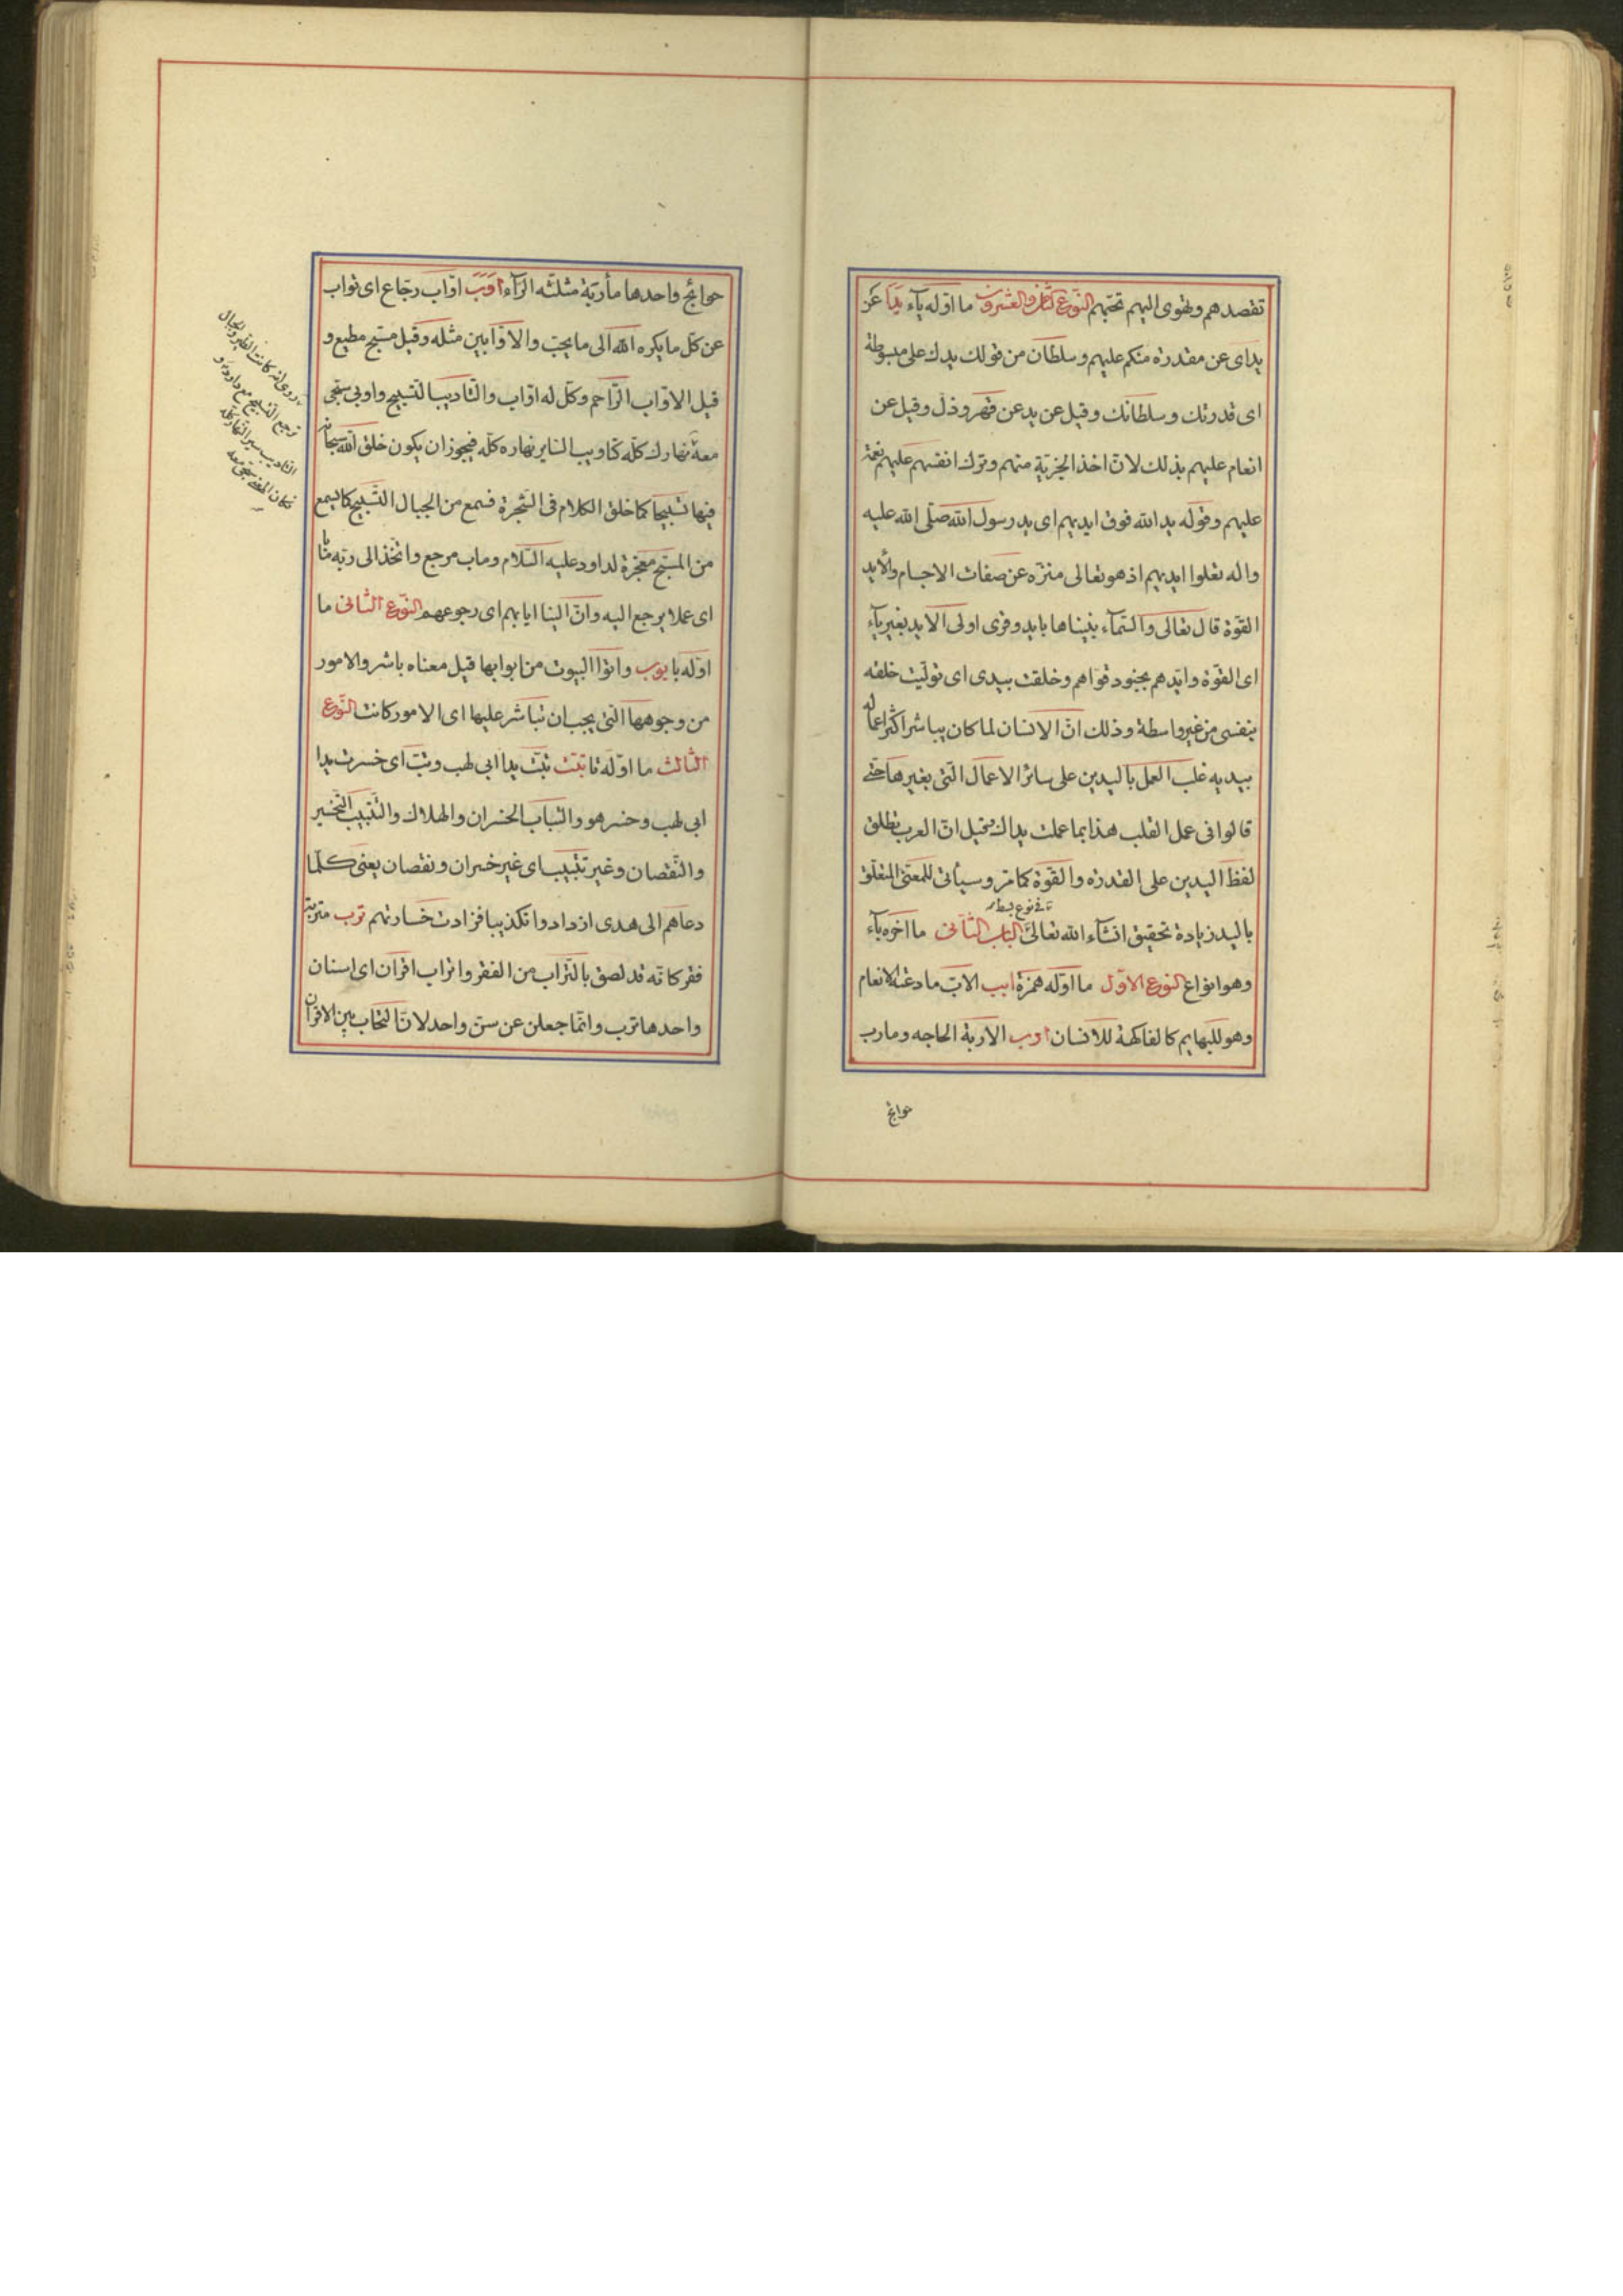 تقصدهم وتهوى اليهم تحبهم النوع الثامن والعشرون ما اوله يآء يدا عن
يد اى عن مقدرة منكم عليهم وسلطان من قولك يدك على مبسوطة
اى قدرتك وسلطانك وقيل عن يد عن قهر وذل وقيل عن
انعام عليهم بذلك لان اخذ الجزية منهم وترك انفسهم عليهم نعمة
عليهم وقوله يد الله فوق ايديهم اى يد رسول الله صلى الله عليه
واله تعلوا ايديهم اذ هو تعالى منزه عن صفات الاجسام والأيد
القوة قال تعالى والسمآء بنيناها بايد وقرى اولى الايد بغير يآء
اى القوة وايدهم بجنود قواهم وخلقت بيدى اى توليت خلقه
بنفسى من غير واسطة وذلك ان الانسان لما كان يباشر اكثر اعماله
بيديه غلب العمل باليدين على سائر الاعمال التى بغيرها حتى
قالوا فى عمل القلب هذا بما عملت يداك قيل ان العرب تطلق
لفظ اليدين على القدرة والقوة كما مر وسيأتى للمعنى المتعلق
باليد زيادة تحقيق انشآء الله تعالى الباب الثانى ما آخره بآء
وهو انواع النوع الاول ما اوله همزة ابب الاب ما رعته الانعام
وهو للبهايم كالفاكهة للانسان اوب الاربة الحاجه ومارب
حوائج
حوائج واحدها مأربة مثلثه الرآء اوب اواب رجاع اى تواب
عن كل ما يكره الله الى ما يحب والاوابين مثله وقيل مسبح مطيع و
قيل الاواب الراحم وكل له اواب والتاديب التسبيح واوبى سبحى
معه نهارك كله كتاويب الساير نهاره كله فيجوز ان يكون خلق الله سبحانه
فيها تسبيحا كما خلق الكلام فى الشجرة فسمع من الجبال التسبيح كما يسمع
من المسبح معجزة لداود عليه السلام وماب مرجع واتخذ الى ربه مابا
اى عملا يرجع اليه وان الينا ايابهم اى رجوعهم النوع الثانى ما
اوله با بوب واتوا البيوت من ابوابها قيل معناه باشروا الامور
من وجوهها التى يجب ان تباشر عليها اى الامور كانت النوع
الثالث ما اوله تا تبب تبت يدا ابى لهب وتب اى خسرت يدا
ابى لهب وخسر هو والتباب الخسران والهلاك والتتبيب التخسير
والنقصان وغير تتبيب اى غير خسران ونقصان يعنى كلما
دعاهم الى هدى ازدادوا تكذيبا فزادت خسارتهم ترب متربة
فقر كانه قد لصق بالتراب من الفقر واتراب اقران اى اسنان
واحدها ترب وانما جعلن عن سن واحد لان التحاب بين الاقران
روى انه كانت الطير والجبال
ترجع التسبيح مع داود و
التاديب سير النهار كله
فكان المعنى سبحى معه